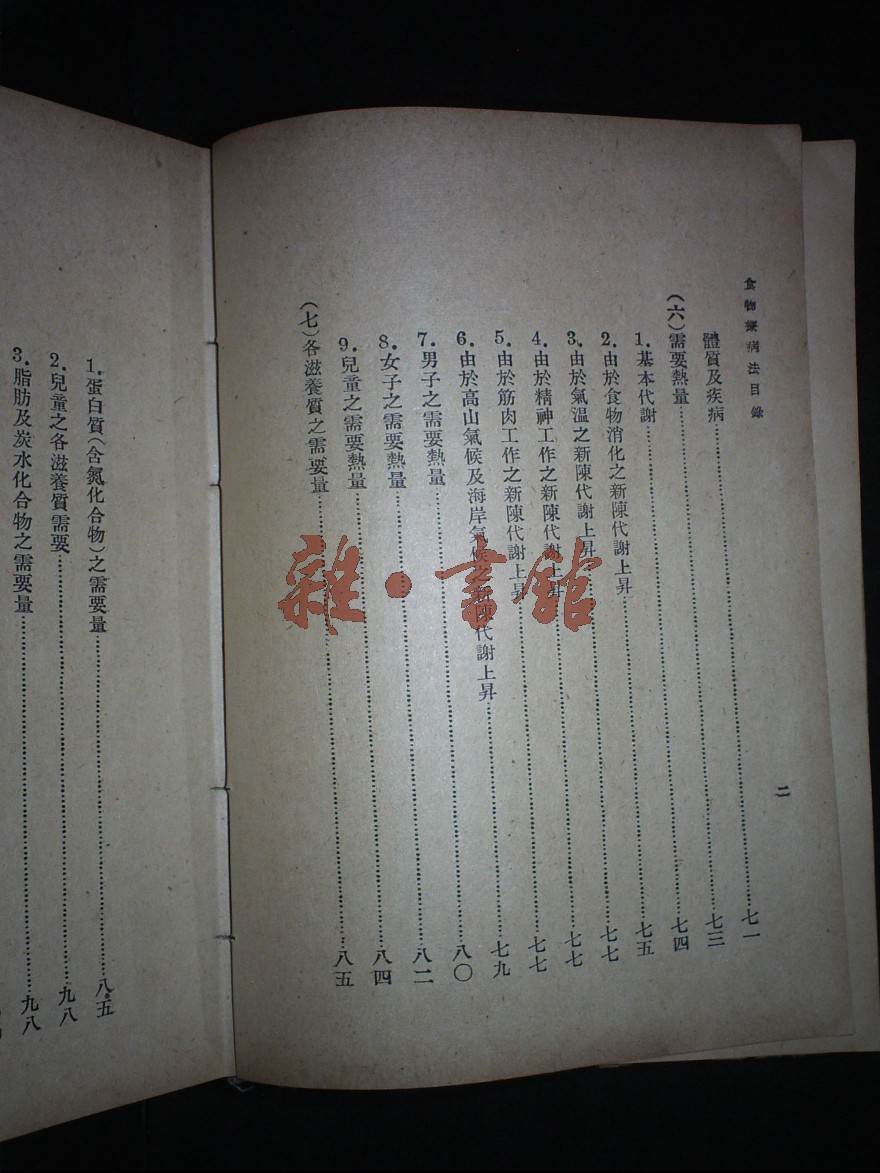 食物療病法目錄
二
體質及疾病……七一
(六)需要熱量……七三
1.基本代謝……七四
2.由於食物消化之新陳代謝上昇……七五
3.由於氣溫之新陳代謝上昇……七七
4.由於精神工作之新陳代謝上昇……七七
5.由於筋肉工作之新陳代謝上昇……七七
6.由於高山氣候及海岸氣候之新陳代謝上昇……七九
7.男子之需要熱量……八〇
8.女子之需要熱量……八二
9.兒童之需要熱量……八四
(七)各滋養質之需要量……八五
1.蛋白質(含氮化合物)之需要量……八五
2.兒童之各滋養質需要……九八
3.脂肪及炭水化合物之需要量……九八
雜·書館